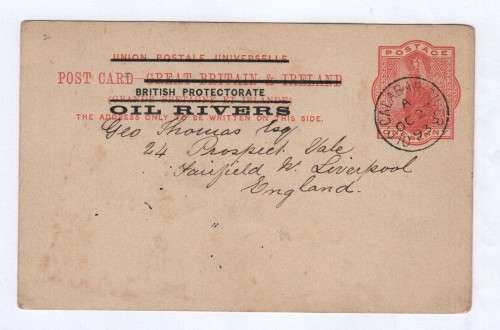 UNION POSTALE UNIVERSELLE
POSTAGE
POST CARD GREAT BRITAIN & IRELAND
BRITISH PROTECTORATE
OIL RIVERS
THE ADDRESS ONLY TO BE WRITTEN ON THIS SIDE.
Geo Thomas Esq
24 Prospect Vale
Fairfield W. Liverpool
England.